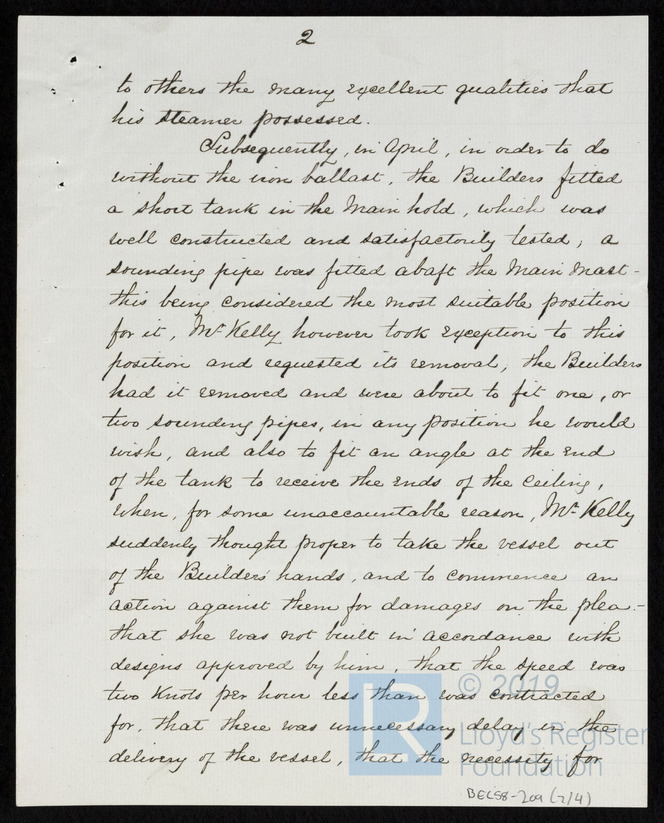 2
to others the many excellent qualities that
his steamer possessed.
Subsequently, in April, in order to do
without the iron ballast, the Builders fitted
a short tank in the Main hold, which was
well constructed and satisfactorily tested; a
sounding pipe was fitted abaft the Main Mast -
this being considered the most suitable position
for it, Mr Kelly however took exception to this
position and requested its removal; the Builders
had it removed and were about to fit one, or
two sounding pipes, in any position he would
wish, and also to fit an angle at the end
of the tank to receive the ends of the ceiling,
when, for some unaccountable reason, Mr Kelly
suddenly thought proper to take the vessel out
of the Builders' hands, and to commence an
action against them for damages on the plea -
that she was not built in accordance with
designs approved by him, that the speed was
two knots per hour less than was contracted
for, that there was unnecessary delay in the
delivery of the vessel, that the necessity for
© 2019
Lloyd's Register
Foundation
BEC58-209 (2/4)